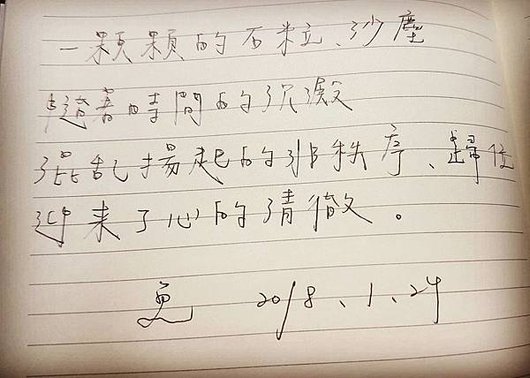 一顆顆的石粒、沙塵
趨著時間的沉澱
混亂揚起的非秩序、歸位
迎来了心的清徹。
2018、1、24